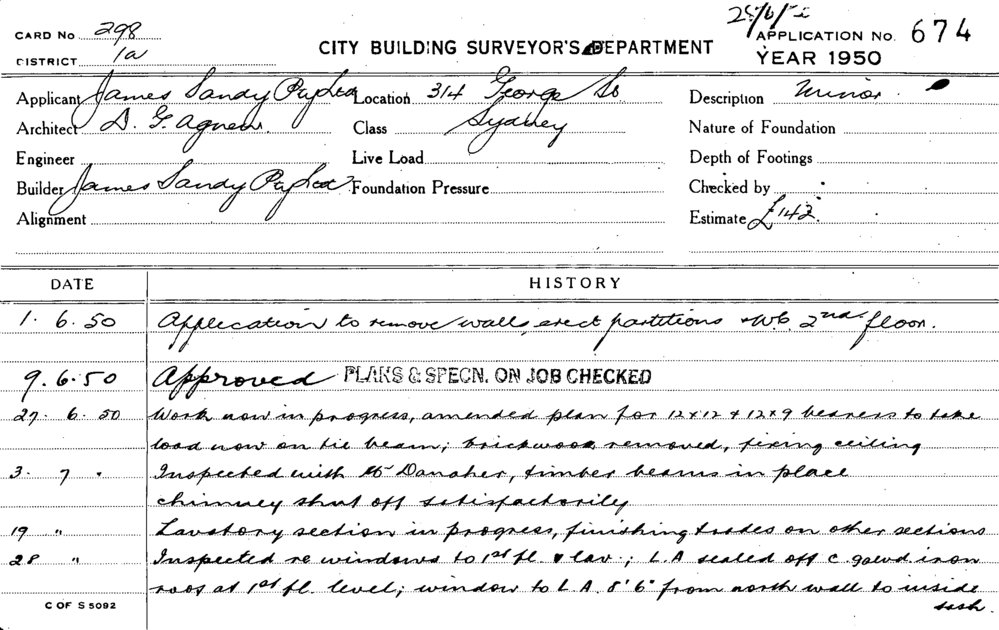 28/6/50
CARD No 298
APPLICATION No. 674
DISTRICT 1a
CITY BUILDING SURVEYOR'S DEPARTMENT
YEAR 1950
Applicant James Sandy Pty Ltd Location 314 George St Description Minor
Architect D. G. Agnew. Class Sydney Nature of Foundation
Engineer Live Load Depth of Footings
Builder James Sandy Pty Ltd Foundation Pressure Checked by
Alignment Estimate £142
DATE HISTORY
1. 6. 50 Application to remove walls, erect partitions & W.C. 2nd floor.
9. 6. 50 Approved PLANS & SPECN. ON JOB CHECKED
27. 6. 50 Work now in progress, amended plan for 12 x 12 & 12 x 9 bearers to take
load now on tie beam; brickwork removed, fixing ceiling
3. 7 " Inspected with Mr Danaher, timber beams in place
chimney shut off satisfactorily
19 " Lavatory section in progress, finishing trades on other sections
28 " Inspected re windows to 1st fl. & lav; L.A sealed off c galvd iron
roof at 1st fl. level; window to L.A. 8' 6" from north wall to inside
sash.
C OF S 5092